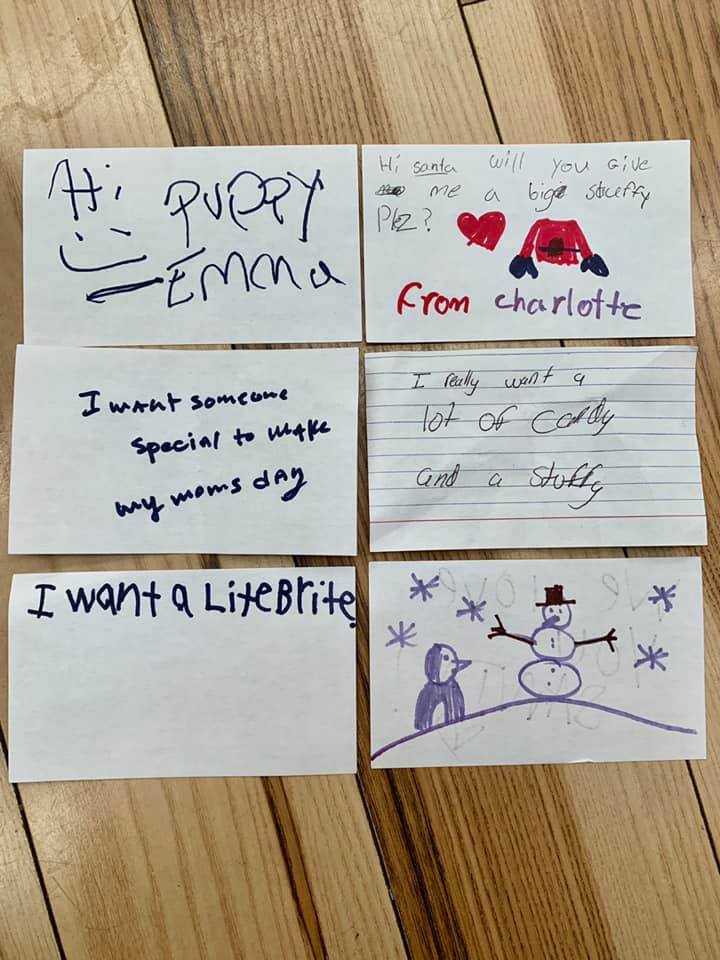 Hi PUPPY
EMMa
Hi santa will you Give
me a big stuffy
Plz?
From charlotte
I want someone
special to make
my moms day
I really want a
lot of candy
and a stuffy
I want a LiteBrite.